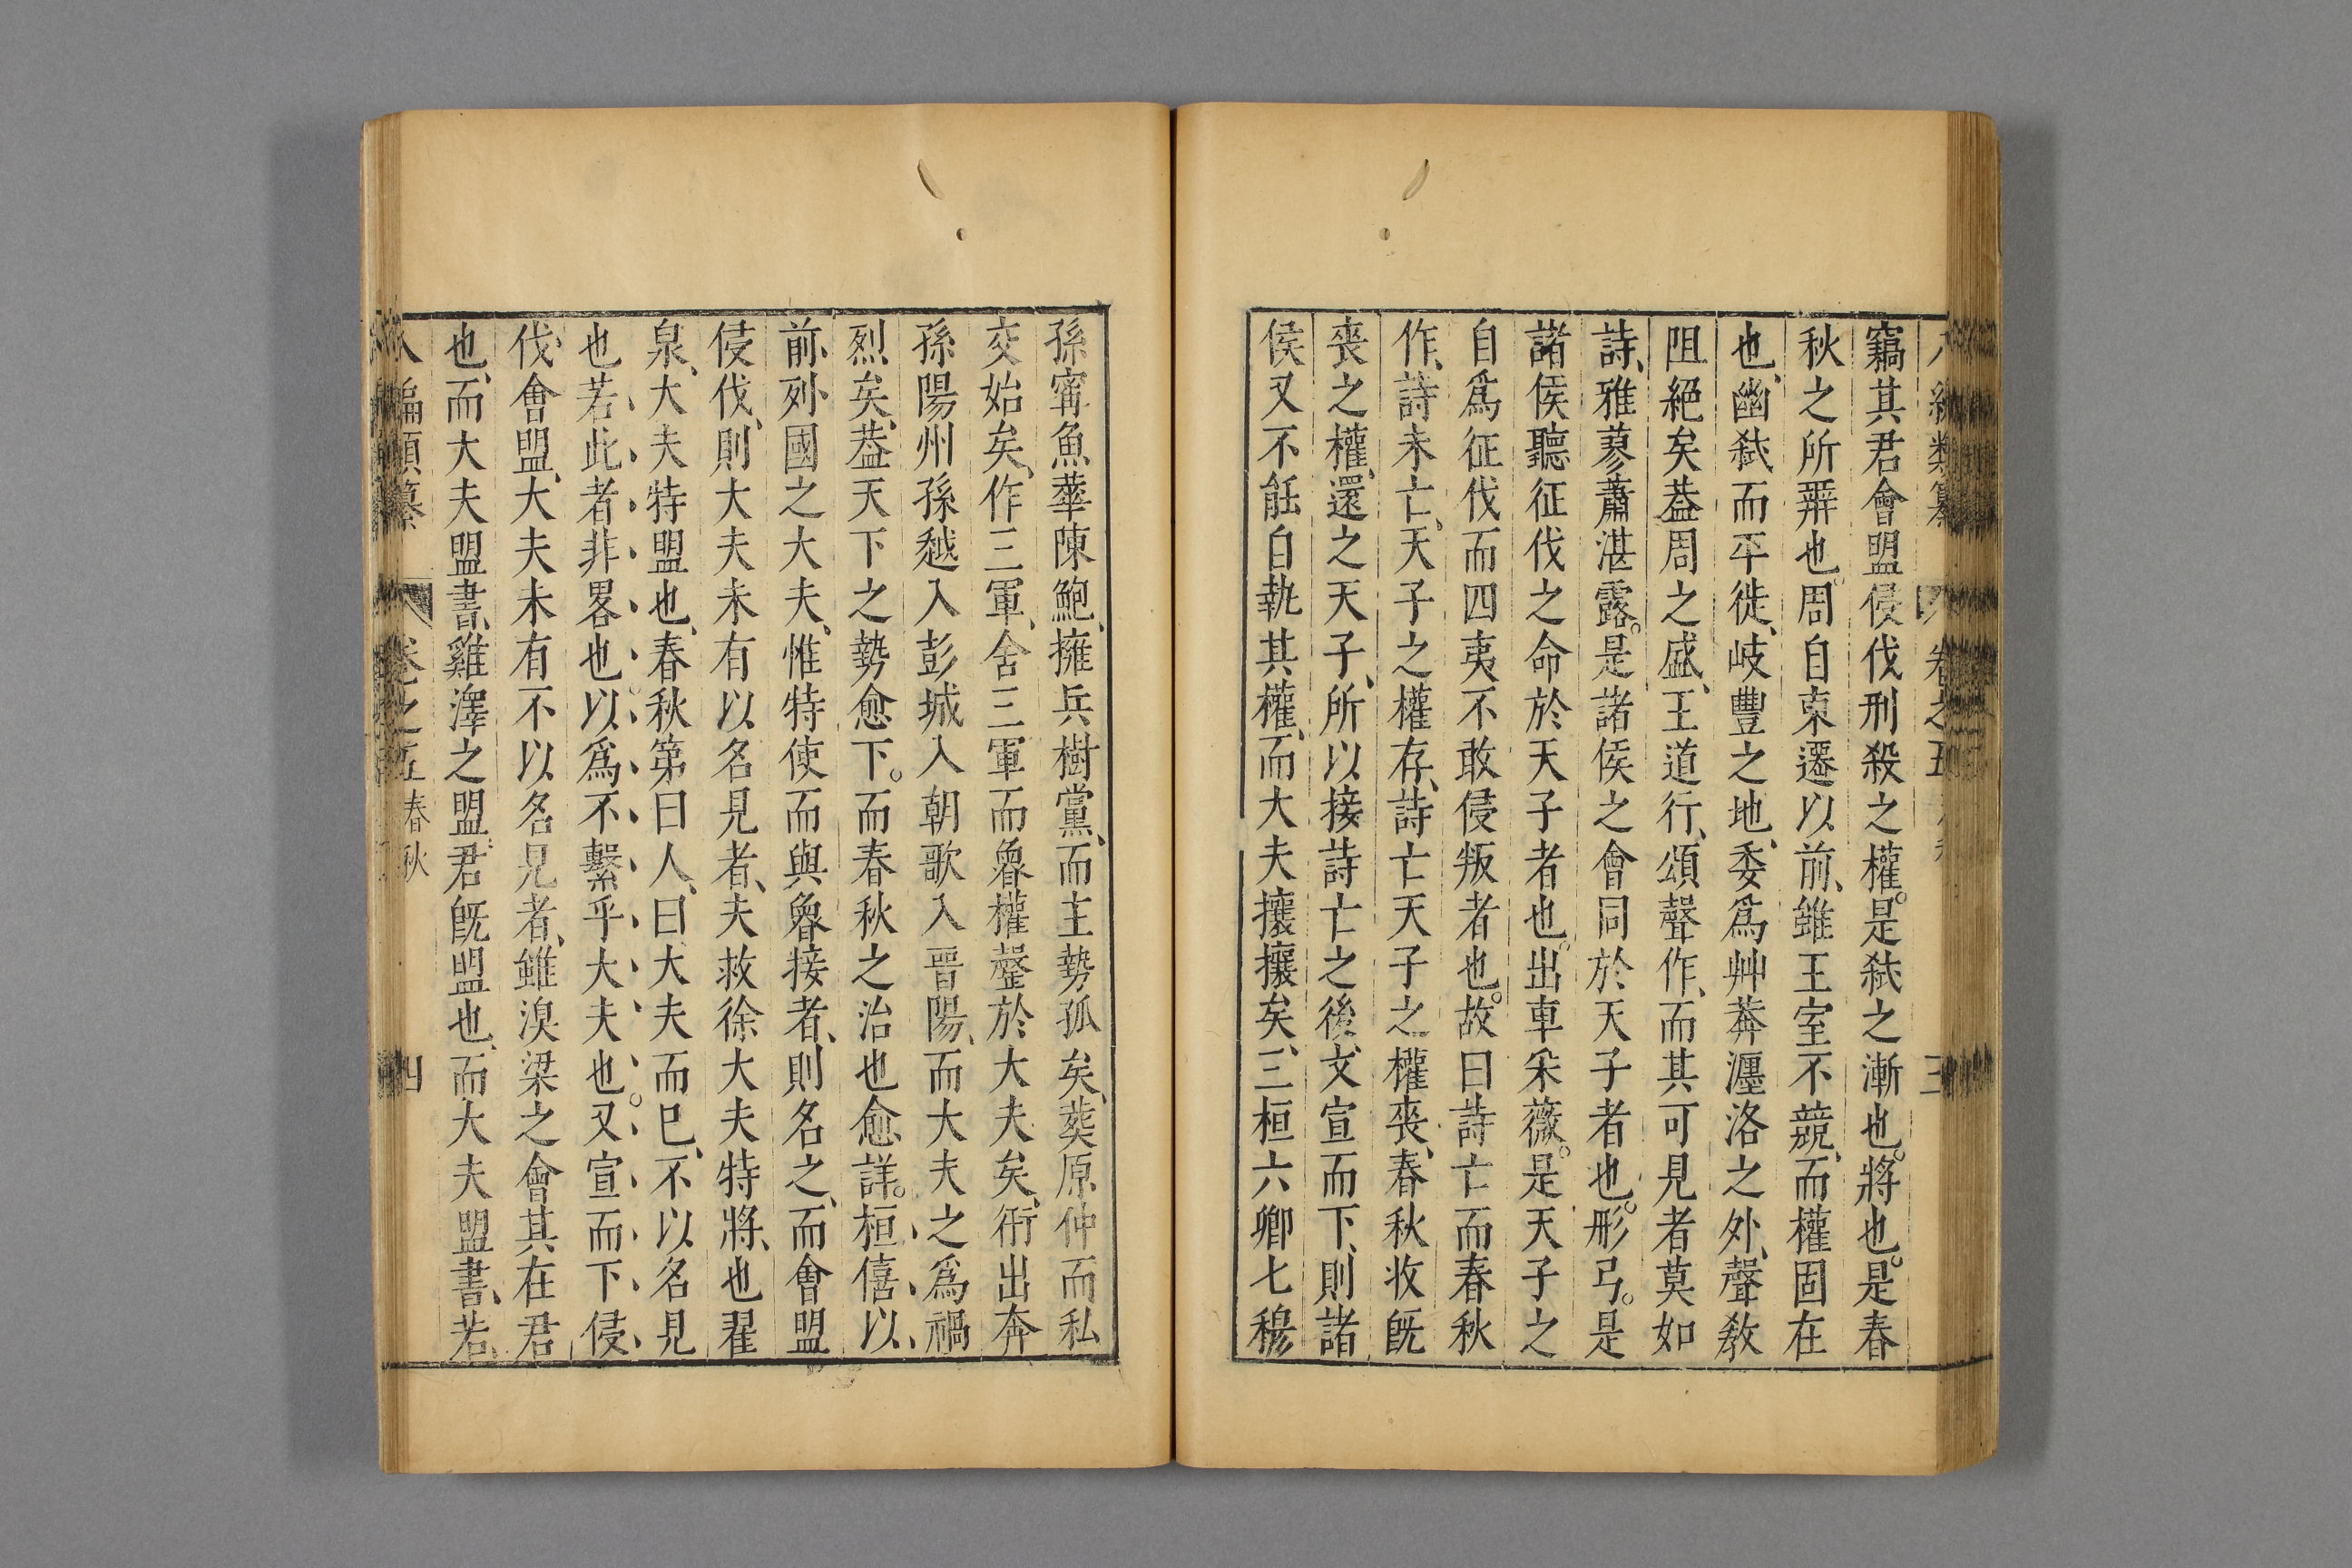 編類纂 卷之五 三
竊其君會盟侵伐刑殺之權。是弑之漸也。將也。是春
秋之所辨也。周自東遷以前、雖王室不競、而權固在
也、幽弑而平徙、岐豐之地、委爲艸莽、瀍洛之外、聲敎
阻絕矣葢周之盛、王道行、頌聲作、而其可見者莫如
詩、雅蓼蕭湛露。是諸侯之會同於天子者也。彤弓。是
諸侯聽征伐之命於天子者也。出車采薇。是天子之
自爲征伐而四夷不敢侵叛者也。故曰詩亡而春秋
作、詩未亡、天子之權存、詩亡天子之權喪、春秋收旣
喪之權、還之天子、所以接詩亡之後、文宣而下、則諸
侯又不能自執其權、而大夫攘攘矣、三桓六卿七穆
孫甯魚華陳鮑、擁兵樹黨、而主勢孤矣、葵原仲而私
交始矣、作三軍、舍三軍而魯權罄於大夫矣、衎出奔
孫陽州孫越入彭城入朝歌入晉陽、而大夫之爲禍
烈矣、葢天下之勢愈下。而春秋之治也愈詳。桓僖以
前、列國之大夫、惟特使而與魯接者、則名之、而會盟
侵伐、則大夫未有以名見者、夫救徐大夫特將、也翟
泉、大夫特盟也、春秋第曰人、曰大夫而已、不以名見
也若此者非畧也。以爲不繫乎大夫也。又宣而下侵
伐會盟、大夫未有不以名見者、雖溴梁之會其在君
也、而大夫盟書、雞澤之盟、君旣盟也、而大夫盟書、若
八編類纂 卷之五 春秋 四